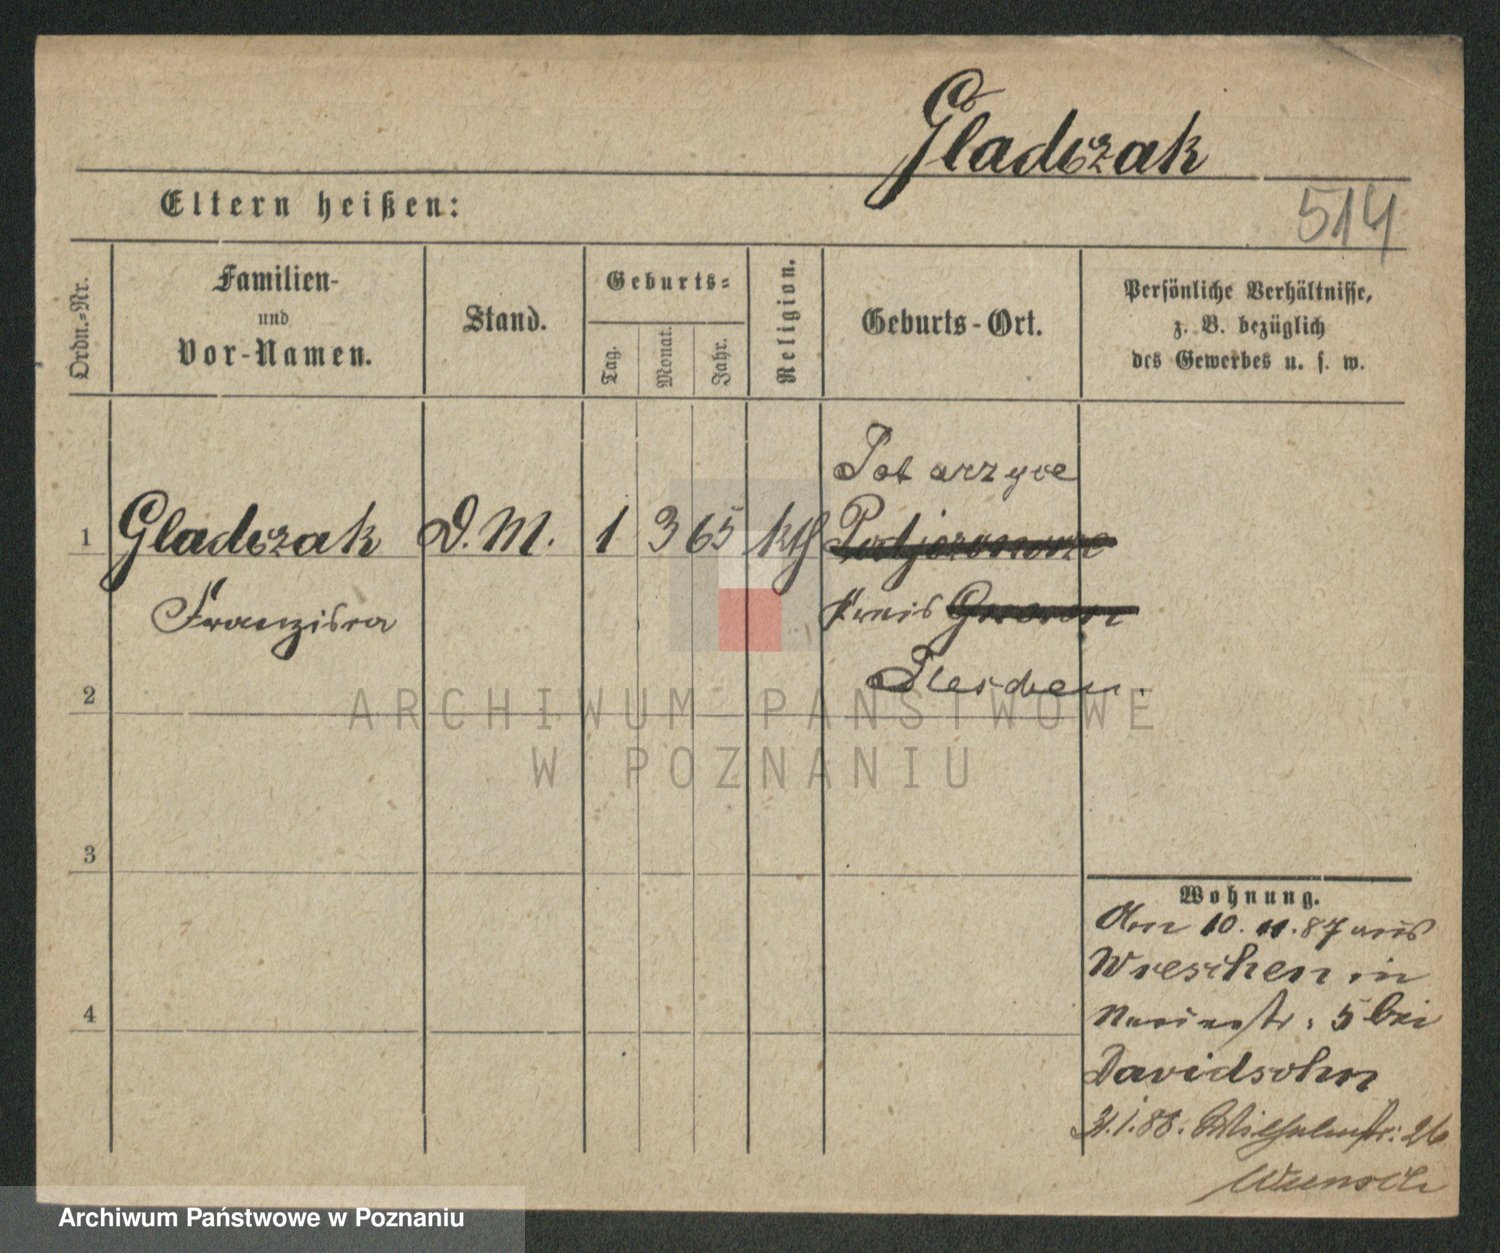 Gladczak
514
Eltern heißen:
Ordn.-Nr.
Familien-
und
Vor-Namen.
Stand.
Geburts-
Tag.
Monat.
Jahr.
Religion.
Geburts-Ort.
Persönliche Verhältnisse,
z. B. bezüglich
des Gewerbes u. s. w.
1 Gladczak D.M. 1 3 65 kth
Franziska
Potarzyce
Kreis
Pleschen.
2
3
4
Wohnung.
Am 10.11.87 aus
Wreschen in
5 bei
Davidsohn
31.1.88. Wilhelmstr: 26
Wunsch
ARCHIWUM PAŃSTWOWE
W POZNANIU
Archiwum Państwowe w Poznaniu